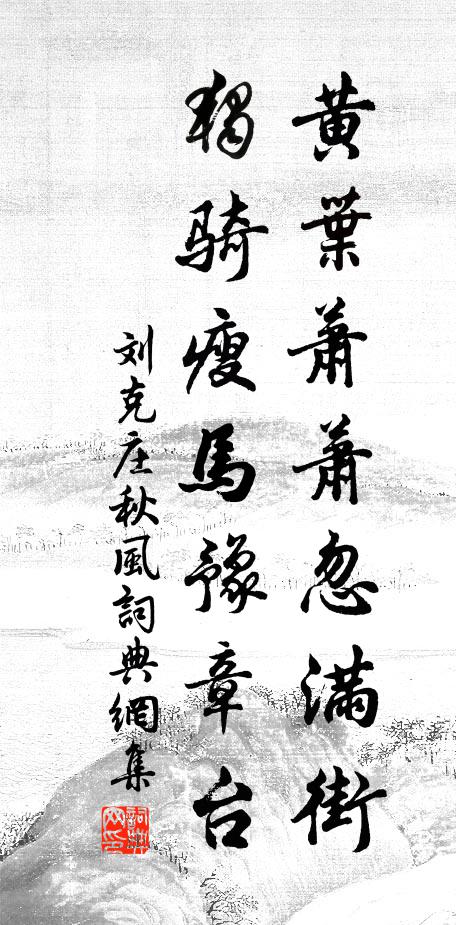 黃葉蕭蕭忽滿街
獨騎瘦馬豫章台
刘克庄秋風詞典網集